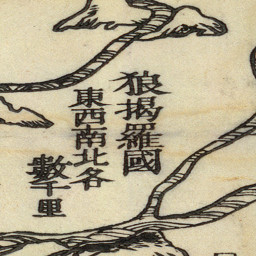 狼揭羅國
東西南北各
數千里